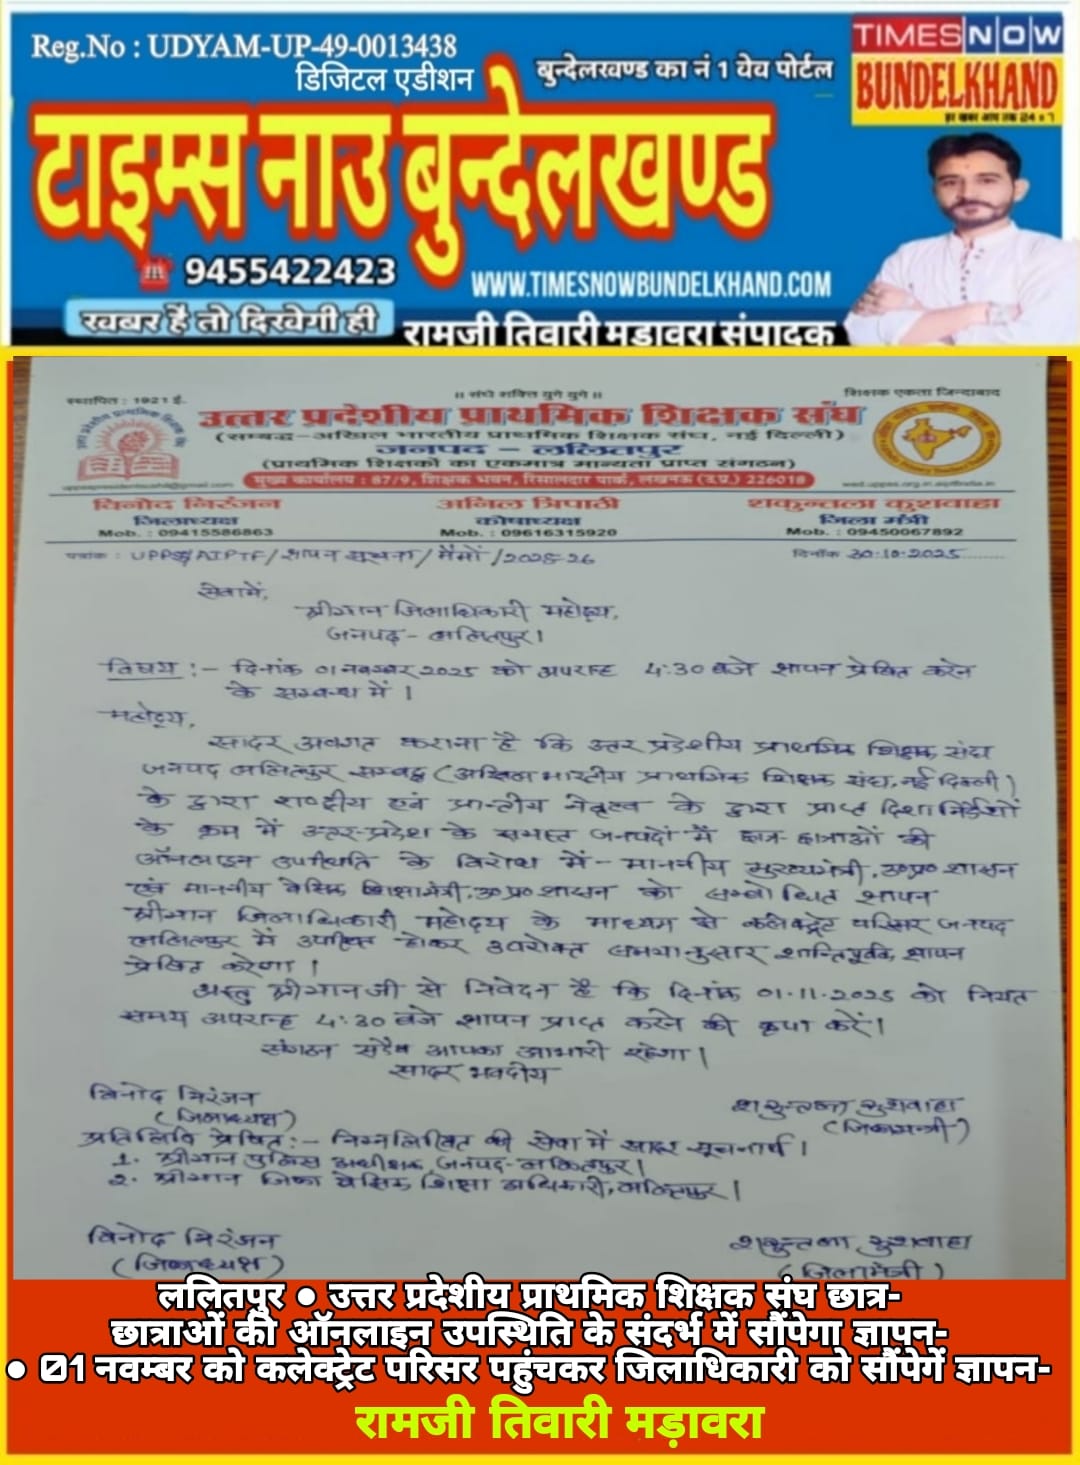 Reg.No : UDYAM-UP-49-0013438
डिजिटल एडीशन
बुन्देलखण्ड का नं 1 वेव पोर्टल
TIMES NOW
BUNDELKHAND
हर खबर आप तक 24 x 7
टाइम्स नाउ बुन्देलखण्ड
9455422423
WWW.TIMESNOWBUNDELKHAND.COM
खबर है तो दिखेगी ही
रामजी तिवारी मडावरा संपादक
स्थापित : 1921 ई.
।। संघे शक्ति युगे युगे ।।
शिक्षक एकता जिन्दाबाद
उत्तर प्रदेशीय प्राथमिक शिक्षक संघ
(सम्बद्ध-अखिल भारतीय प्राथमिक शिक्षक संघ, नई दिल्ली)
जनपद - ललितपुर
(प्राथमिक शिक्षकों का एकमात्र मान्यता प्राप्त संगठन)
मुख्य कार्यालय : 87/9, शिक्षक भवन, रिसालदार पार्क, लखनऊ (उ.प्र.) 226018
विनोद निरंजन
जिलाध्यक्ष
Mob. : 09415586863
अनिल त्रिपाठी
कोषाध्यक्ष
Mob. : 09616315920
शकुन्तला कुशवाहा
जिला मंत्री
Mob. : 09450067892
पत्रांक : UPPSS/AIPTF/ज्ञापन सूचना/मैमों/2025-26
दिनाँक 30.10.2025
सेवामें,
श्रीमान जिलाधिकारी महोदय,
जनपद - ललितपुर।
विषय :- दिनांक 01 नवम्बर 2025 को अपरान्ह 4:30 बजे ज्ञापन प्रेषित करने
के सम्बन्ध में।
महोदय,
सादर अवगत कराना है कि उत्तर प्रदेशीय प्राथमिक शिक्षक संघ
जनपद ललितपुर सम्बद्ध (अखिल भारतीय प्राथमिक शिक्षक संघ, नई दिल्ली)
के द्वारा राष्ट्रीय एवं प्रान्तीय नेतृत्व के द्वारा प्राप्त दिशा निर्देशों
के क्रम में उत्तर-प्रदेश के समस्त जनपदों में छात्र-छात्राओं की
ऑनलाइन उपस्थिति के विरोध में - माननीय मुख्यमंत्री, उ०प्र० शासन
एवं माननीय बेसिक शिक्षामंत्री, उ०प्र० शासन को सम्बोधित ज्ञापन
श्रीमान जिलाधिकारी महोदय के माध्यम से कलेक्ट्रेट परिसर जनपद
ललितपुर में उपस्थित होकर उपरोक्त समयानुसार शान्तिपूर्वक ज्ञापन
प्रेषित करेगा।
अस्तु श्रीमान जी से निवेदन है कि दिनांक 01.11.2025 को नियत
समय अपरान्ह 4:30 बजे ज्ञापन प्राप्त करने की कृपा करें।
संगठन सदैव आपका आभारी रहेगा।
सादर भवदीय
विनोद निरंजन
(जिलाध्यक्ष)
शकुन्तला कुशवाहा
(जिलामन्त्री)
प्रतिलिपि प्रेषित :- निम्नलिखित की सेवा में सादर सूचनार्थ।
1. श्रीमान पुलिस अधीक्षक, जनपद-ललितपुर।
2. श्रीमान जिला बेसिक शिक्षा अधिकारी, ललितपुर।
विनोद निरंजन
(जिलाध्यक्ष)
शकुन्तला कुशवाहा
(जिलामंत्री)
ललितपुर ● उत्तर प्रदेशीय प्राथमिक शिक्षक संघ छात्र-
छात्राओं की ऑनलाइन उपस्थिति के संदर्भ में सौंपेगा ज्ञापन-
● 01 नवम्बर को कलेक्ट्रेट परिसर पहुंचकर जिलाधिकारी को सौंपेगें ज्ञापन-
रामजी तिवारी मड़ावरा